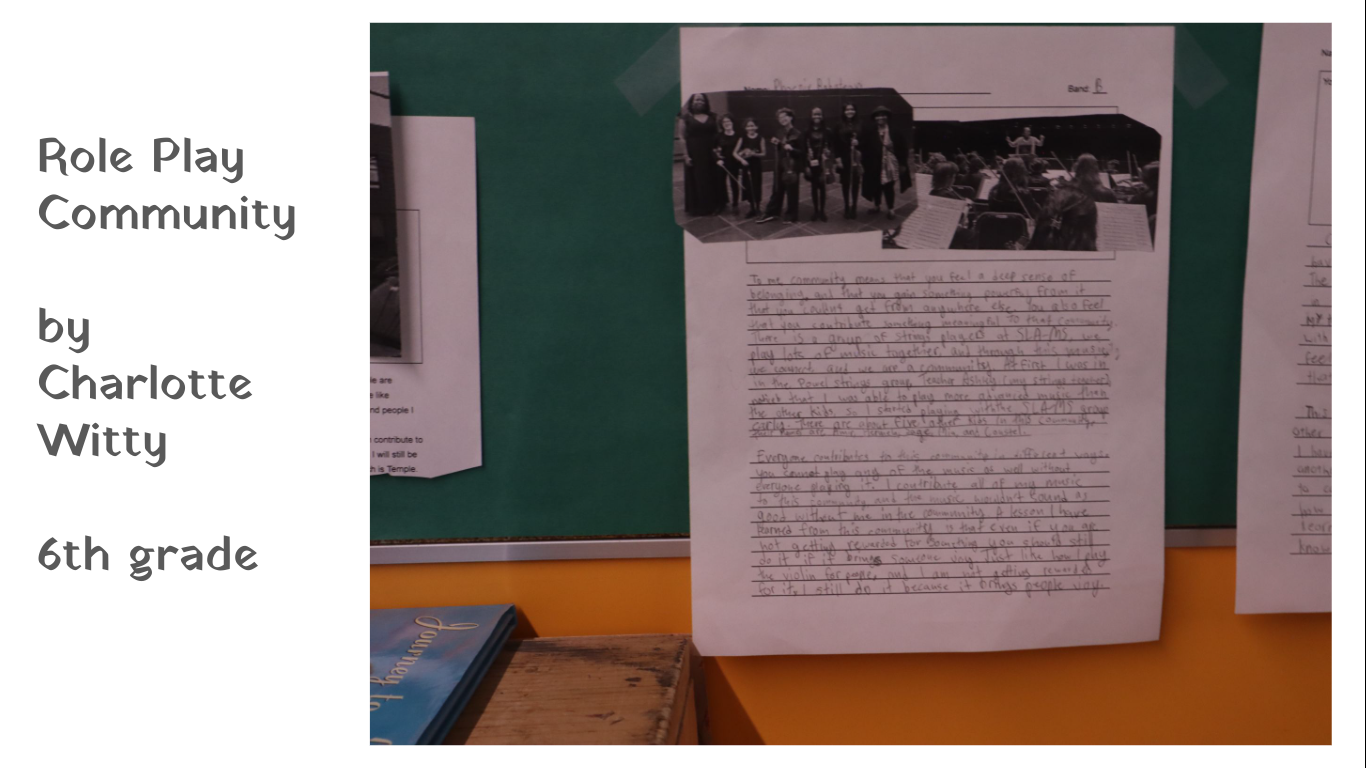 Role Play
Community
by
Charlotte
Witty
6th grade
Name
Band: B
To me community means that you feel a deep sense of
belonging, and that you gain something from it
that you couldnt get from anywhere else. You also feel
that you contribute something meaningful to that community.
There is a group of strings players at SLA-MS, we
play lots of music together, and through this
we are a community. At first I was in
in the Powel strings group. Teacher (my strings teacher)
that I was able to play more advanced music than
the other kids, so I started playing with the SLA-MS group
early. There are about five other kids in this community,
Everyone contributes to this community in different ways.
you cannot play any of the music as well without
everyone playing it. I contribute all of my music
to this community and the music wouldn't sound as
good without me in the community. A lesson I have
learned from this community is that even if you are
not getting rewarded for something you should still
do it if it brings someone joy. Just like how I play
the violin for people, and I am not getting rewarded
for it, I still do it because it brings people joy.
le are
e like
nd people I
contribute to
I will still be
h is Temple.
Journey to
Na
Yo
The
in
with
feel
This
other
I have
know